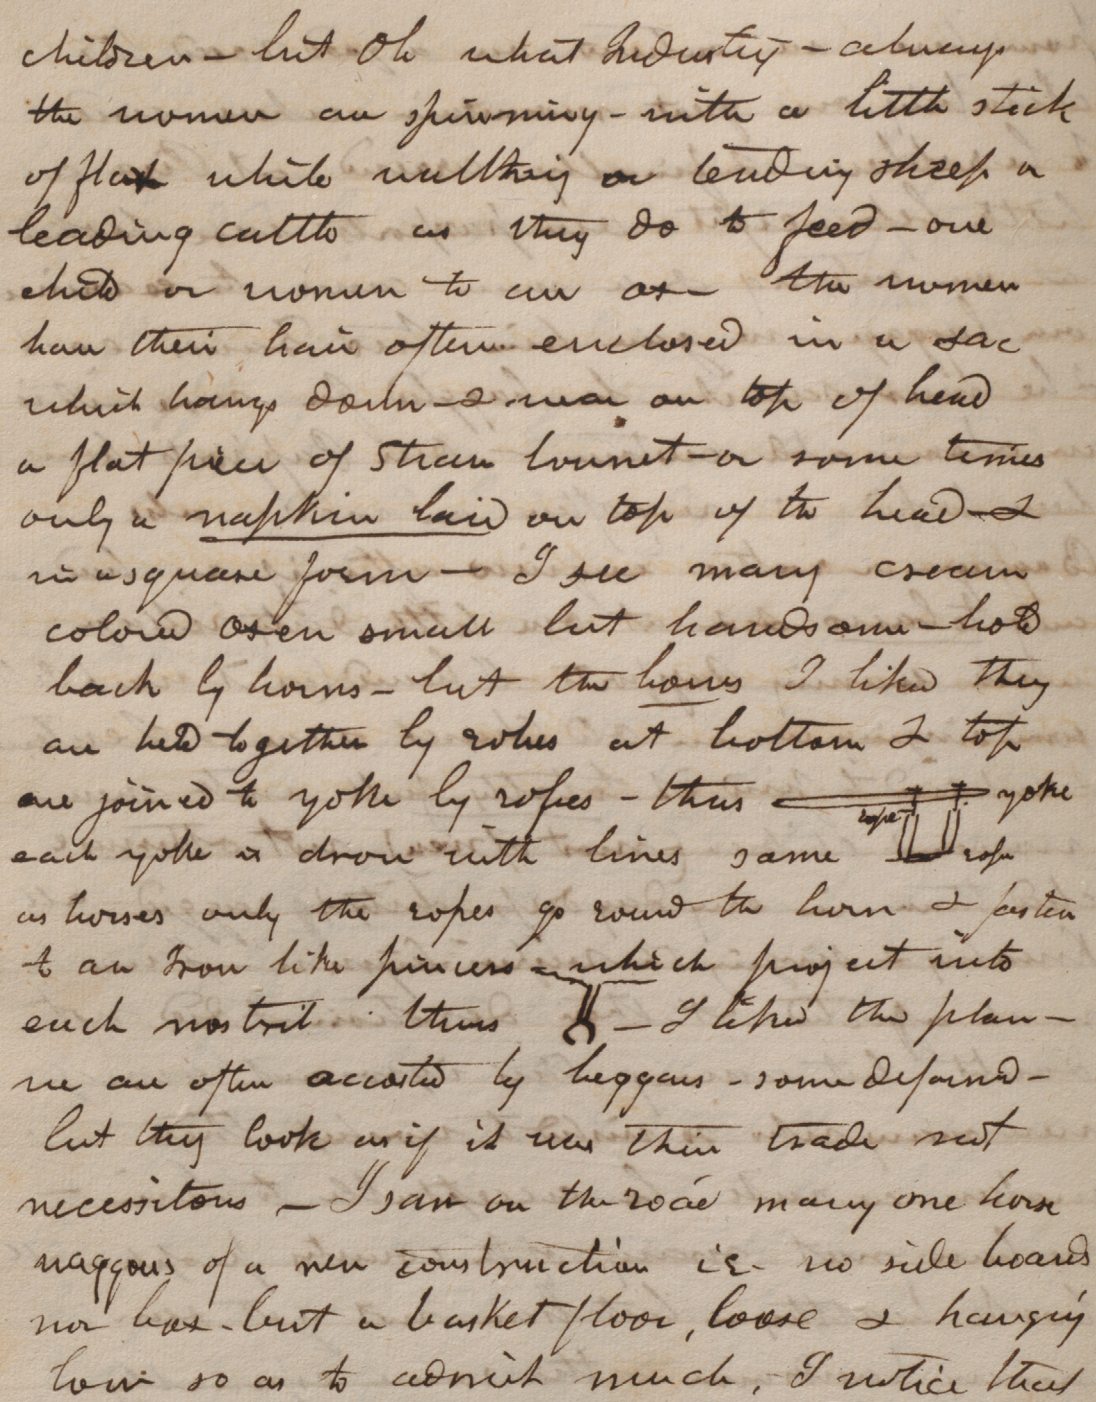 children – but Oh what Industry – always
the women are spinning – with a little stick
of flax while walking or tending sheep or
leading cattle as they do to feed – one
child or women to an ox – the women
have their hair often enclosed in a sac
which hangs down – & wear on top of head
a flat piece of Straw bonnet – or some times
only a napkin laid on top of the head – &
in a square form – I see many cream
colored oxen small but handsome – hold
back by horns – but the bows I liked they
are held together by at bottom & top
are joined to yoke by ropes – thus yoke
rope
each yoke is drove with lines same rope
as horses only the ropes go round the horn & fasten
to an Iron like pincers – which project into
each nostril thus – I liked the plan –
we are often accosted by beggars – some deformed –
but they look as if it was their trade not
necessitous – I saw on the road many one horse
waggons of a new construction ie – no side boards
nor box – but a basket floor, loose & hanging
low so as to admit much, I notice that